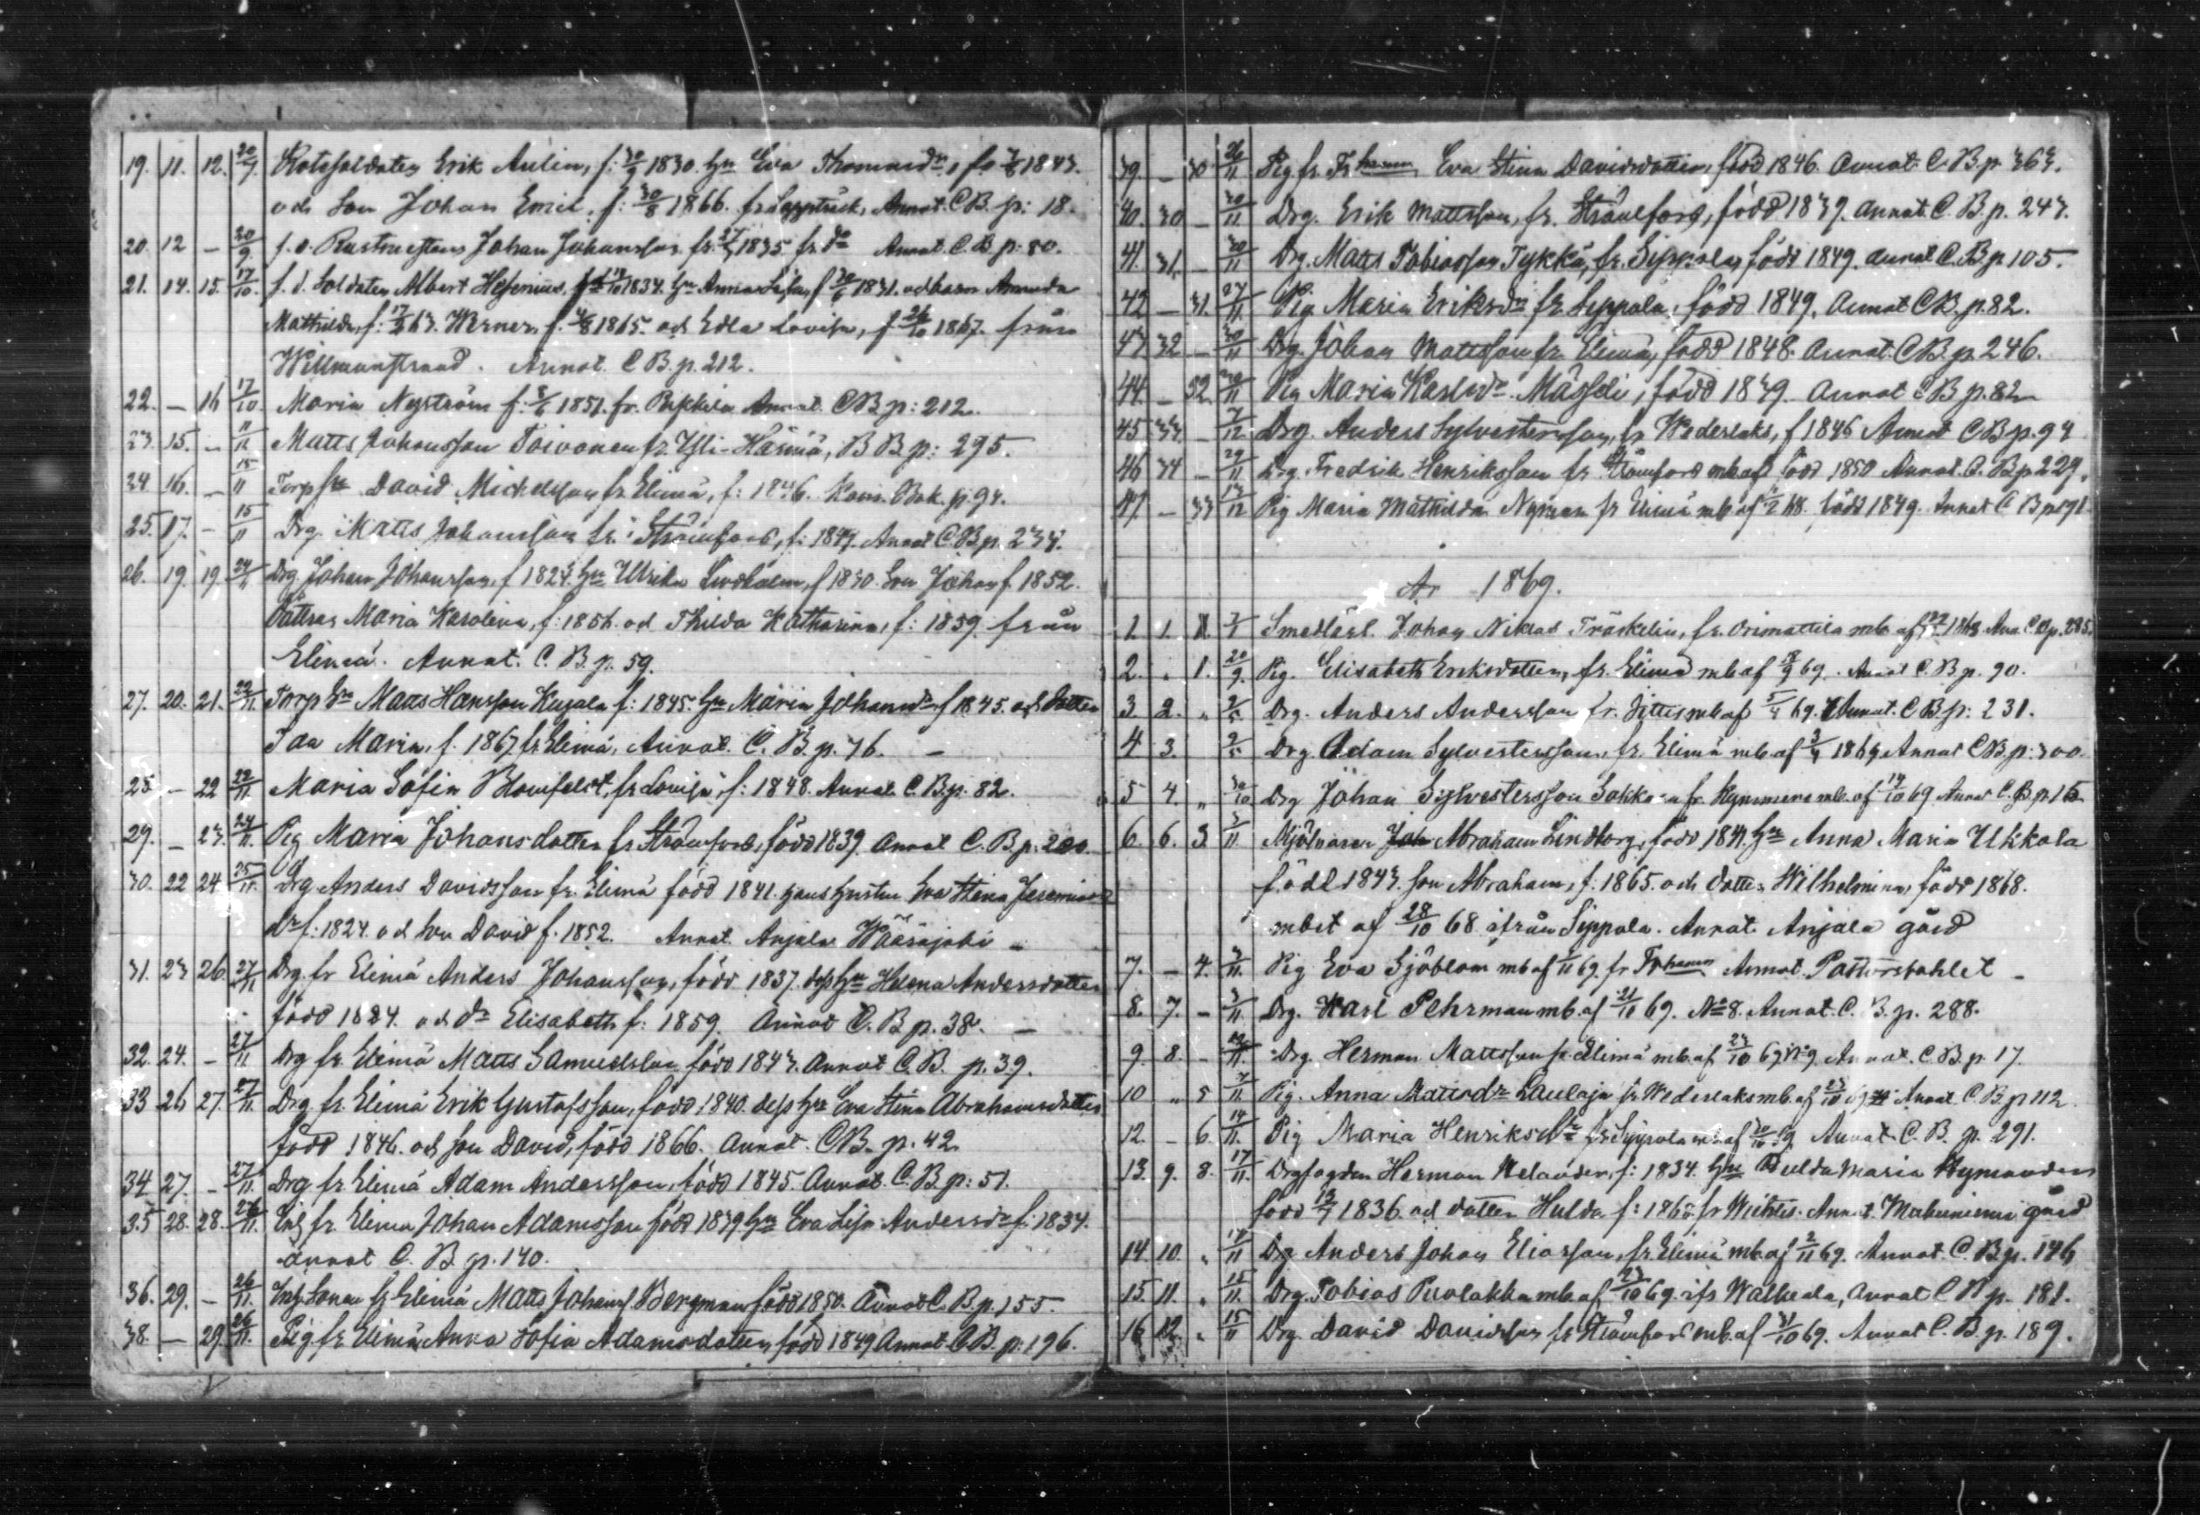 19. 11. 12. 20/9 Rotesoldaten Erik Aulin, f: 30/9 1830. Hu Eva Thomasdr, f. 1843.
och Son Johan Emil, f: 30/8 1866. fr Lapptresk, Annot. C.B. p: 18.
20. 12 – 20/9 f. d. Johan Johansson 1835 fr do Annot. C.B. p: 80.
21. 14. 15. 17/10. f. d. Soldaten Albert Hesenius, 1834. Hu Anna Lisa, f 1831. och barn Amanda
Mathilda, f: 63. Werner, f. 4/8 1865. och Edla Lovisa, f. 26/10 1867. från
Willmanstrand. Annot. C B. p. 212.
22. – 16 17/10. Maria Nyström f: 1851. fr. Annot. CB p: 212.
23 15. – 11/11 Matts Johansson Toivonen fr. Ylli-Härmä, B B p: 295.
24 16. – 15/11 Torp David Michelsson fr Elimä, f: 1846. Kom. Bok. p. 94.
25. 17. – 15/11 Drg. Matts Johansson fr. Strömfors, f: 1849. Annot C.B. p. 233.
26. 19. 19. 24/11 Drg Johan Johansson, f 1823. Hu Ulrika Lindholm, f 1830. Son Johan f. 1852.
Döttrar Maria Karolina, f: 1856. och Thilda Katharina, f: 1859. från
Elimä. Annot. C. B. p. 59.
27. 20. 21. 22/11. Torp Matts Hansson Kujala f: 1845. Hu Maria Johansdr f 1845. och Dotter
Ida Maria, f. 1867 fr Elimä, Annot. C. B. p. 76. –
25. – 22 22/11. Maria Sofia Blomfelt, fr Lovisa, f: 1848. Annot. C. B. p. 82.
29. – 23. 24/11. Pig Maria Johansdotter fr Strömfors, född 1839. Annot C. B. p. 200.
30. 22 24 25/11. Drg Anders Davidsson fr. Elimä född 1841. hans hustru Eva Stina
Dr f: 1824. och Son David f. 1852. Annot. Anjala Wääräjoki –
31. 23 26. 27/11 Drg. fr Elimä Anders Johansson, född 1837. dess Hu Helena Andersdotter
född 1824. och Dr Elisabeth f: 1859. Annot C. B p. 38. –
32. 24. – 27/11 Drg fr. Elimä Matts Samuelsson född 1843. Annot C. B. p. 39.
33 26 27. 27/11. Drg fr. Elimä Erik Gustafsson, född 1840. dess Hu Eva Stina Abrahamsdotter
född 1846. och son David, född 1866. Annot. CB. p. 42.
34 27. – 27/11. Drg fr Elimä Adam Andersson, född 1845. Annot. C. B p: 51.
35 28. 28. 26/11. Inh fr. Elimä Johan Adamsson född 1839 Hu Eva Lisa Andersdr f: 1834.
Annot C. B p. 140.
36. 29. – 26/11. Inh Sonen fr Elimä Matts Johanss Bergman född 1850. Annot C. B. p. 155.
38. – 29. 26/11. Pig fr Elimä Anna Sofia Adamsdotter, född 1849 Annot C.B. p: 196.
39. – 30 26/11 Pig fr. Frhamn Eva Stina Davidsdotter, född 1846. Annot. C. B p 363.
40. 30 – 30/11. Drg. Erik Mattsson, fr. Strömfors, född 1839. Annot. C. B. p. 243.
41. 31. – 30/11 Drg. Matts Tobiasson Tykkä, fr. Sippola, född 1849. Annot C. B p 105.
42 – 31. 27/11. Pig. Maria Eriksdr fr. Sippola, född 1849. Annot CB. p. 82.
43 32 – 30/11 Drg. Johan Mattsson fr. Elimä, född 1848. Annot. C.B. p. 246.
44 – 32. 30/11 Pig Maria Karlsdr Mässeli, född 1839. Annot C B p. 82
45 33. – 7/12 Drg. Anders Sylvestersson, fr Wederlaks, f 1846 Annot CB p. 94
46 34 – 29/11 Drg. Fredrik Henriksson fr Strömfors född 1850 Annot. C. B p 229.
47. – 33 13/12 Pig Maria Mathilda Nyman fr Elimä mb af 68. född 1849. Annot C B p 191
År 1869.
1. 1. Johan Niklas Träskelin, fr. Orimattila mb af 1868 Ann. C.B p. 285.
2. „ 1. 20/9. Pig. Elisabeth Eriksdotter, fr Elimä mb af 69. Annot C. B p. 90.
3 2. „ Drg. Anders Andersson fr. Jittis mb af 69. Annot. C B p: 231.
4 3. Drg. Adam Sylvestersson, fr. Elimä mb af 1869 Annot CB p: 300.
5 4. „ 30/10 Drg Johan Sylvestersson Sokka fr. Kymmene mb. af 14/10 69. Annot C. B. p. 15
6. 6. 3. 3/11 Mjölnaren Abraham Lindborg, född 1841. Hu Anna Maria Ukkola
född 1843. son Abraham, f. 1865. och dotter Wilhelmina, född 1868.
mbet af 28/10 68 ifrån Sippola. Annot. Anjala gård
7. – 4. 3/11. Pig Eva Sjöblom mb af 69. fr Frhamn Annot. Pastorsbohlet –
8. 7. – 3/11. Drg. Karl Pehrman mb. af 21/10 69. No 8. Annot. C. B. p. 288.
9. 8. – Drg. Herman Mattsson fr Elimä mb. af 23/10 69 Annot. C. B. p. 17.
10 „ 5 7/11. Pig. Anna Mattsdr Laulaja fr Wederlaks mb. af 23/10 69 Annot C. B p 112
12. – 6. 14/11. Pig Maria Henriksdr fr Sippola mb af 69 Annot. C. B. p. 291.
13. 9. 8. 17/11. Drgfogden Herman Helander, f: 1834. Hu Hulda Maria
född 1836. och dotter Hulda f: 1868 fr Wichtis. Annot. gård
14. 10. „ 14/11 Drg. Anders Johan Eliasson, fr. Elimä mb. af 2/11 69. Annot. C. B p. 146
15. 11. „ 15/11. Drg. Tobias Puolakka mb. af 23/10 69. ifr Walkeala, Annot C B p. 181.
16 12. „ 15/11 Drg. David Davidsson fr Strömfors mb. af 31/10 69. Annot C. B. p. 189.